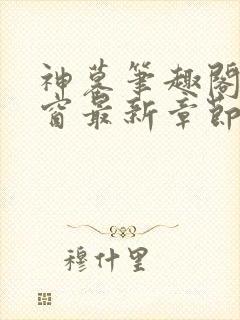 神墓筆趣閣
窗最新章節
穆什里